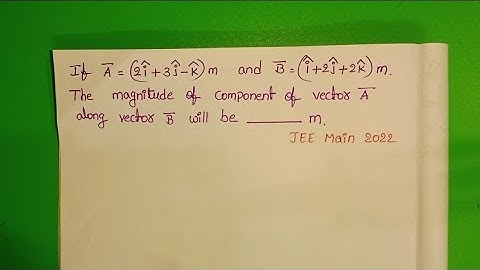 If A̅ = (2î + 3ĵ - k̂) m and B̅ = (î + 2ĵ + 2k̂) m.
The magnitude of component of vector A̅
along vector B̅ will be ______ m.
JEE Main 2022